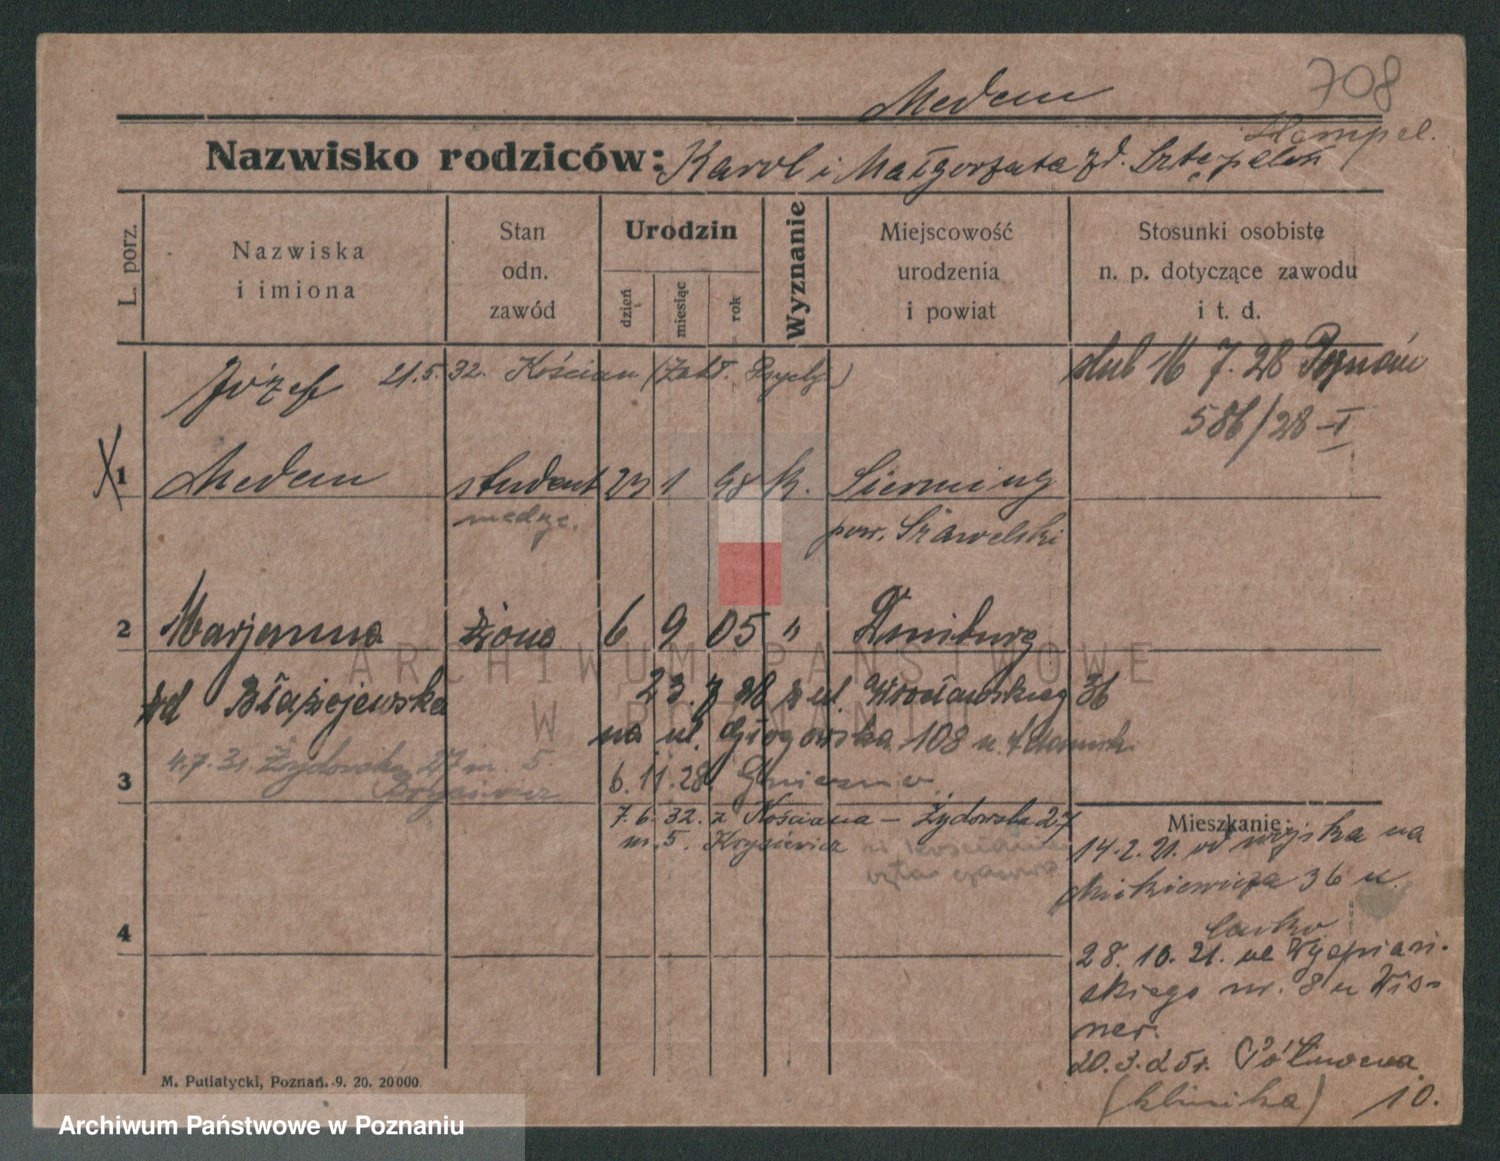 708
Medem
Hempel.
Nazwisko rodziców: Karol i Małgorzata zd.
L. porz.
Nazwiska i imiona
Stan odn. zawód
Urodzin
dzień
miesiąc
rok
Wyznanie
Miejscowość urodzenia i powiat
Stosunki osobiste n. p. dotyczące zawodu i t. d.
Józef 21.5.32. Kościan (Zakł. Psych.)
ślub 16 7. 28 Poznań
586/28 - I
X 1 Medem student 23 1 98 k.
medyc. pow. Szawelski
2 Marjanna żona 6 9 05 "
zd Błażejewska 23. 7 28 z ul. Wrocławskiej 36
na ul. Głogowska 108 u.
4.7.31. Żydowska 27 m. 5.
3 6. 11. 28 Gniezno
7. 6. 32. z Kościana - Żydowska 27
m. 5.
Mieszkanie:
14. 2. 21. od wojska na
Mickiewicza 36 u.
4
28. 10. 21. ul Wyspiań-
skiego nr. 8 u Wis-
ner.
20. 3. 25 r. Półwiejska
(klinika) 10.
M. Putiatycki, Poznań. 9. 20. 20000
ARCHIWUM PAŃSTWOWE
W POZNANIU
Archiwum Państwowe w Poznaniu